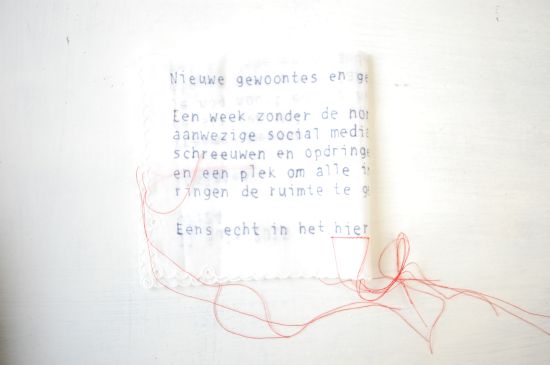 Nieuwe gewoontes en ge
Een week zonder de
aanwezige social media
schreeuwen en opdringe
en een plek om alle i
ringen de ruimte te g
Eens echt in het hier